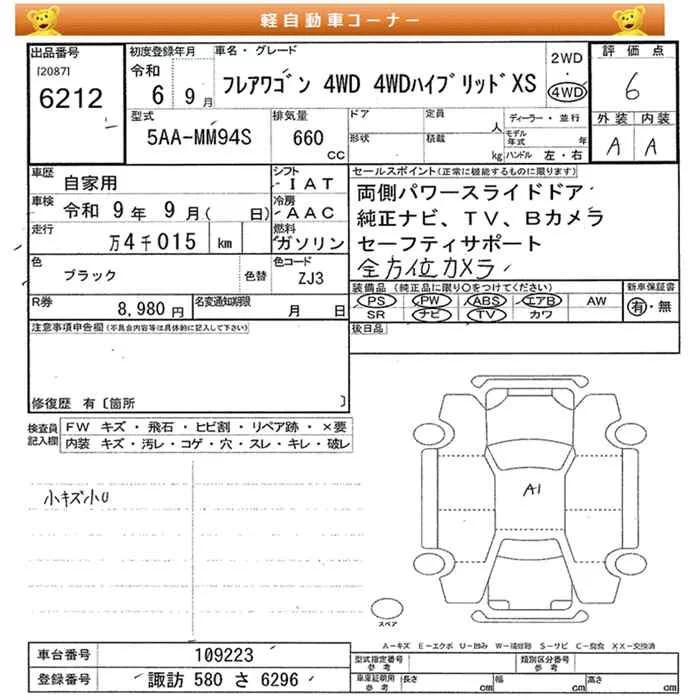 軽自動車コーナー
出品番号
[2087]
6212
初度登録年月
令和
6 9月
車名・グレード
フレアワゴン 4WD 4WDハイブリッドXS
2WD
4WD
評価点
6
外装 内装
A A
型式
5AA-MM94S
排気量
660
CC
ドア
形状
定員
人
積載
kg
ディーラー・並行
モデル年式 年
ハンドル 左・右
車歴
自家用
シフト
IAT
車検
令和 9年 9月( 日)
冷房
AAC
走行
万4千015 km
燃料
ガソリン
色
ブラック
色替
色コード
ZJ3
R券
8,980円
名変通知期限
月 日
セールスポイント(正常に機能するものに限ります)
両側パワースライドドア
純正ナビ、TV、Bカメラ
セーフティサポート
全方位カメラ
装備品 (純正品に限り〇をつけてください)
PS PW ABS エアB AW
SR ナビ TV カワ
新車保証書
有・無
後日品
注意事項申告欄(不具合内容等は具体的に記入して下さい)
修復歴 有〔箇所 〕
検査員記入欄
FW キズ・飛石・ヒビ割・リペア跡・×要
内装 キズ・汚レ・コゲ・穴・スレ・キレ・破レ
小キズ小U
A1
スペア
A=キズ E=エクボ U=凹み W=補修跡 S=サビ C=腐食 XX=交換済
車台番号
109223
登録番号
諏訪 580 さ 6296
型式指定番号
参考
類別区分番号
参考
車庫証明用
参考
長さ cm
幅 cm
高さ cm